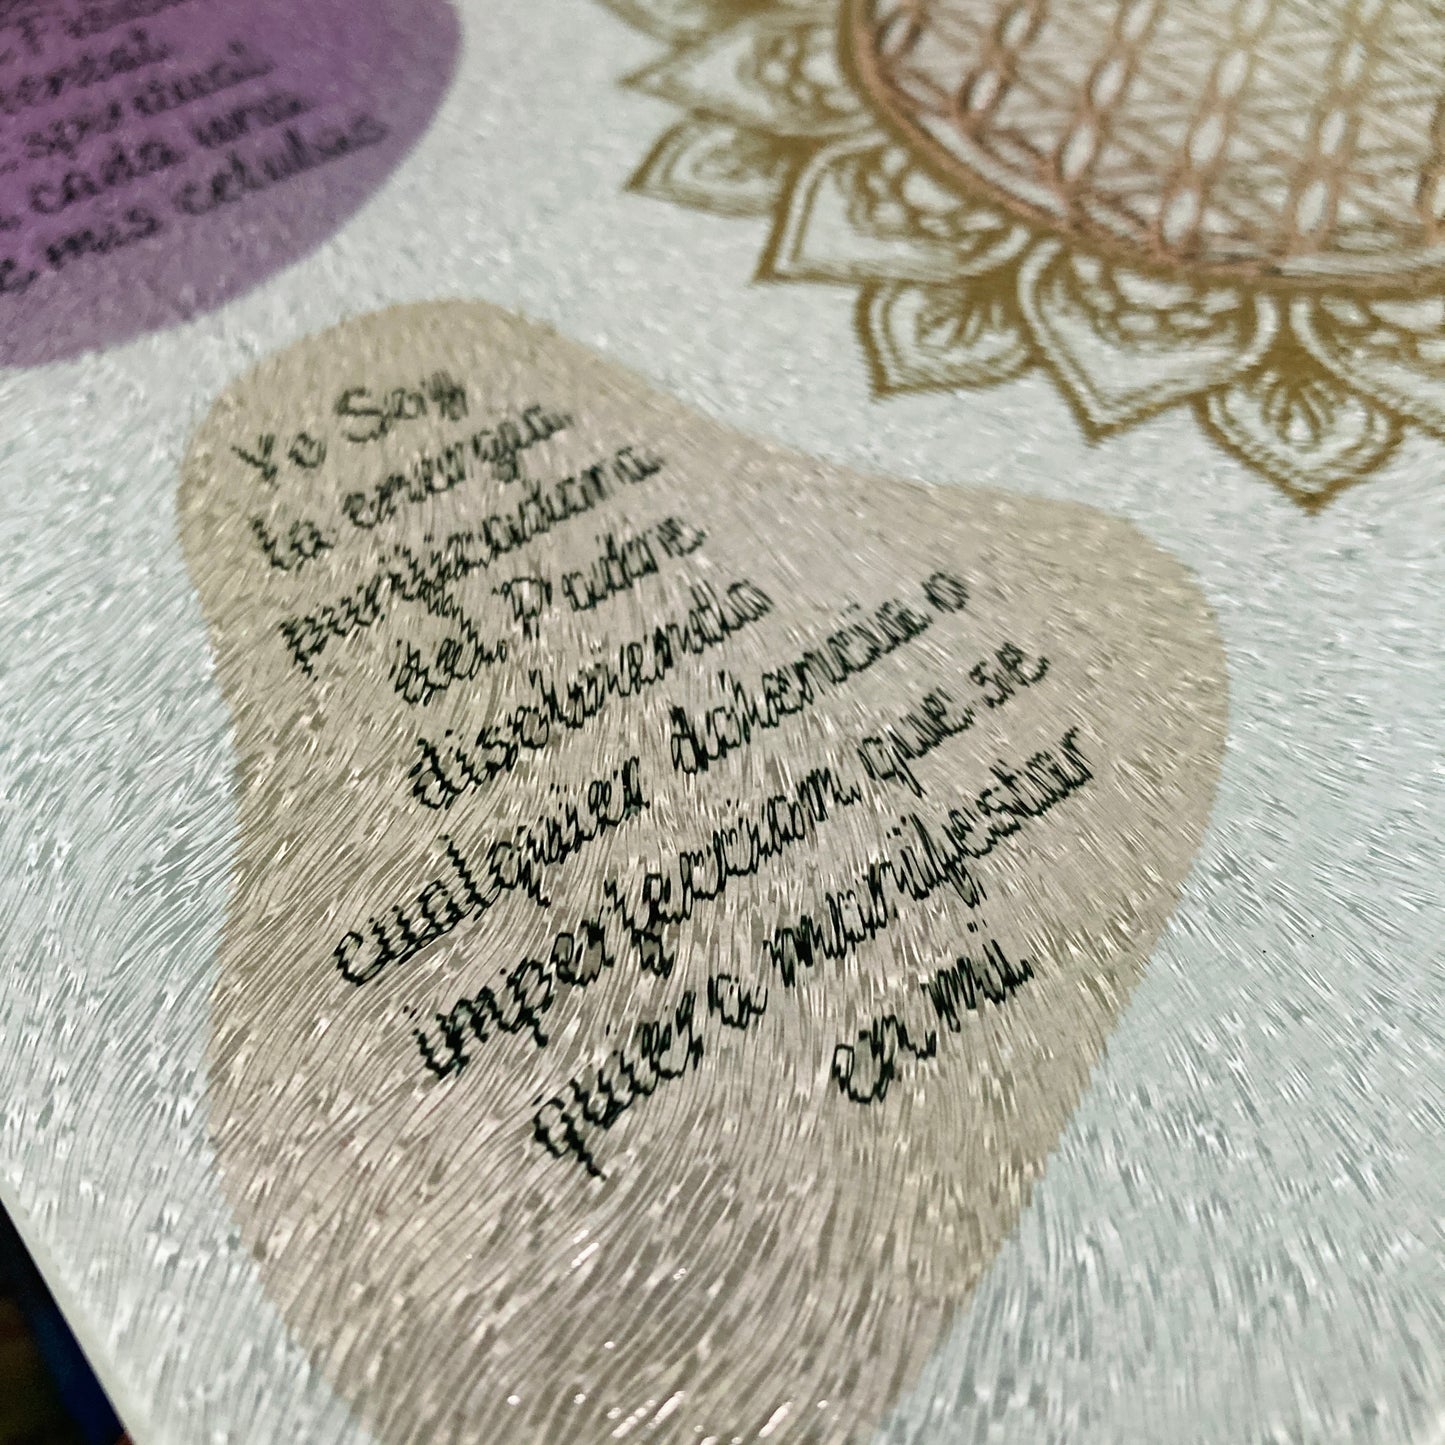 mental
espiritual
cada una
mis celulas
Yo Soy
la energia
purificadora
del Padre
disolviendo
cualquier dolencia o
imperfeccion que se
quiera manifestar
en mi.